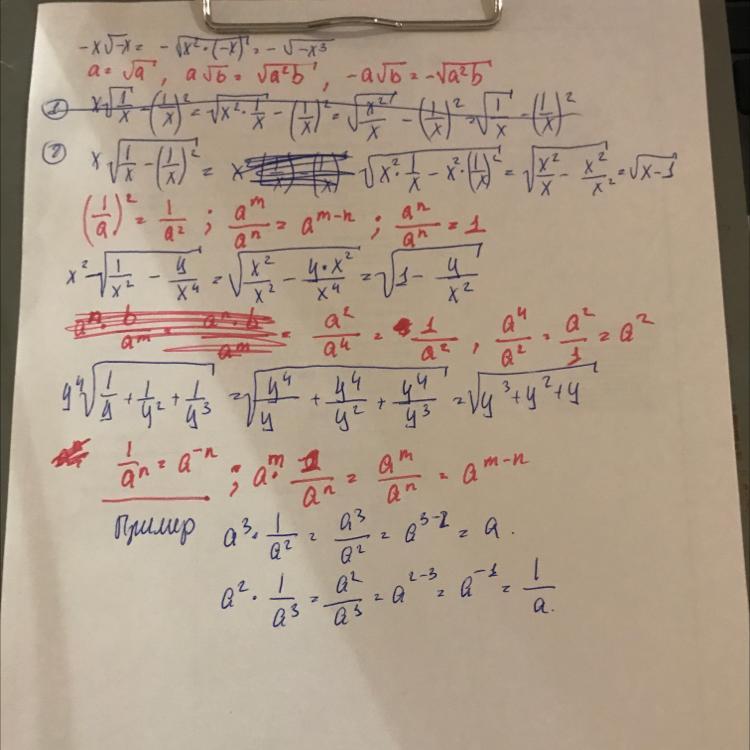 -x√-x = -√x²·(-x) = -√-x³
a = √a , a√b = √a²b , -a√b = -√a²b
① x√1/x - (1/x)² = √x²·1/x - (1/x)² = √x²/x - (1/x)² = √1/x - (1/x)²
② x√1/x - (1/x)² = x √x²·1/x - x²·(1/x)² = √x²/x - x²/x² = √x-1
(1/a)² = 1/a² ; aᵐ/aⁿ = aᵐ⁻ⁿ ; aⁿ/aⁿ = 1
x²√1/x² - y/x⁴ = √x²/x² - y·x²/x⁴ = √1 - y/x²
aⁿ·b/aᵐ = aⁿ·b/aᵐ = a²/a⁴ = 1/a² , a⁴/a² = a²/1 = a²
y⁴√1/y + 1/y² + 1/y³ = √y⁴/y + y⁴/y² + y⁴/y³ = √y³+y²+y
1/aⁿ = a⁻ⁿ ; aᵐ·1/aⁿ = aᵐ/aⁿ = aᵐ⁻ⁿ
Пример a³·1/a² = a³/a² = a³⁻² = a.
a²·1/a³ = a²/a³ = a²⁻³ = a⁻¹ = 1/a.